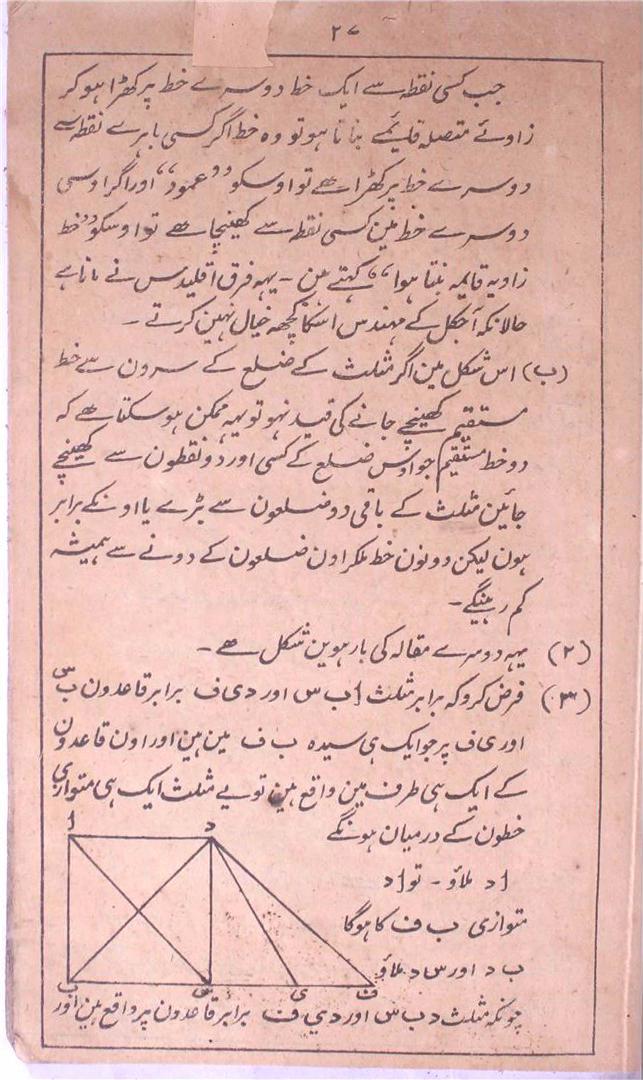 ۲۷
جب کسی نقطہ سے ایک خط دوسرے خط پر کھڑا ہو کر
زاوئے متصلہ قایمے بناتا ہو تو وہ خط اگر کسی باہر کے نقطہ سے
دوسرے خط پر کھڑا ہے تو اوسکو ”عمود“ اور اگر اوسی
دوسرے خط مین کسی نقطہ سے کھینچا ہے تو اوسکو ”خط
زاویہ قایمہ بنتا ہوا“ کہتے ہین - یہہ فرق اقلیدس نے مانا ہے
حالانکہ آجکل کے مہندس اسکا کچھہ خیال نہین کرتے -
(ب) اس شکل مین اگر مثلث کے ضلع کے سرون سے خط
مستقیم کھینچے جانے کی قید نہو تو یہہ ممکن ہو سکتا ہے کہ
دو خط مستقیم جو اوس ضلع کے کسی اور دو نقطون سے کھینچے
جائین مثلث کے باقی دو ضلعون سے بڑے یا اونکے برابر
ہون لیکن دونون خط ملکر اون ضلعون کے دونے سے ہمیشہ
کم رہینگے -
(۲) یہہ دوسرے مقالہ کی بارہوین شکل ہے -
(۳) فرض کرو کہ برابر مثلث ا ب س اور د ی ف برابر قاعدون ب س
اور ی ف پر جو ایک ہی سیدہ ب ف مین ہین اور اون قاعدون
کے ایک ہی طرف مین واقع ہین تو یے مثلث ایک ہی متوازی
خطون کے درمیان ہونگے
ا د ملاؤ - تو ا د
متوازی ب ف کا ہوگا
ب د اور س د ملاؤ
ا د
ب س ی ف
چونکہ مثلث د ب س اور د ی ف برابر قاعدون پر واقع ہین اور